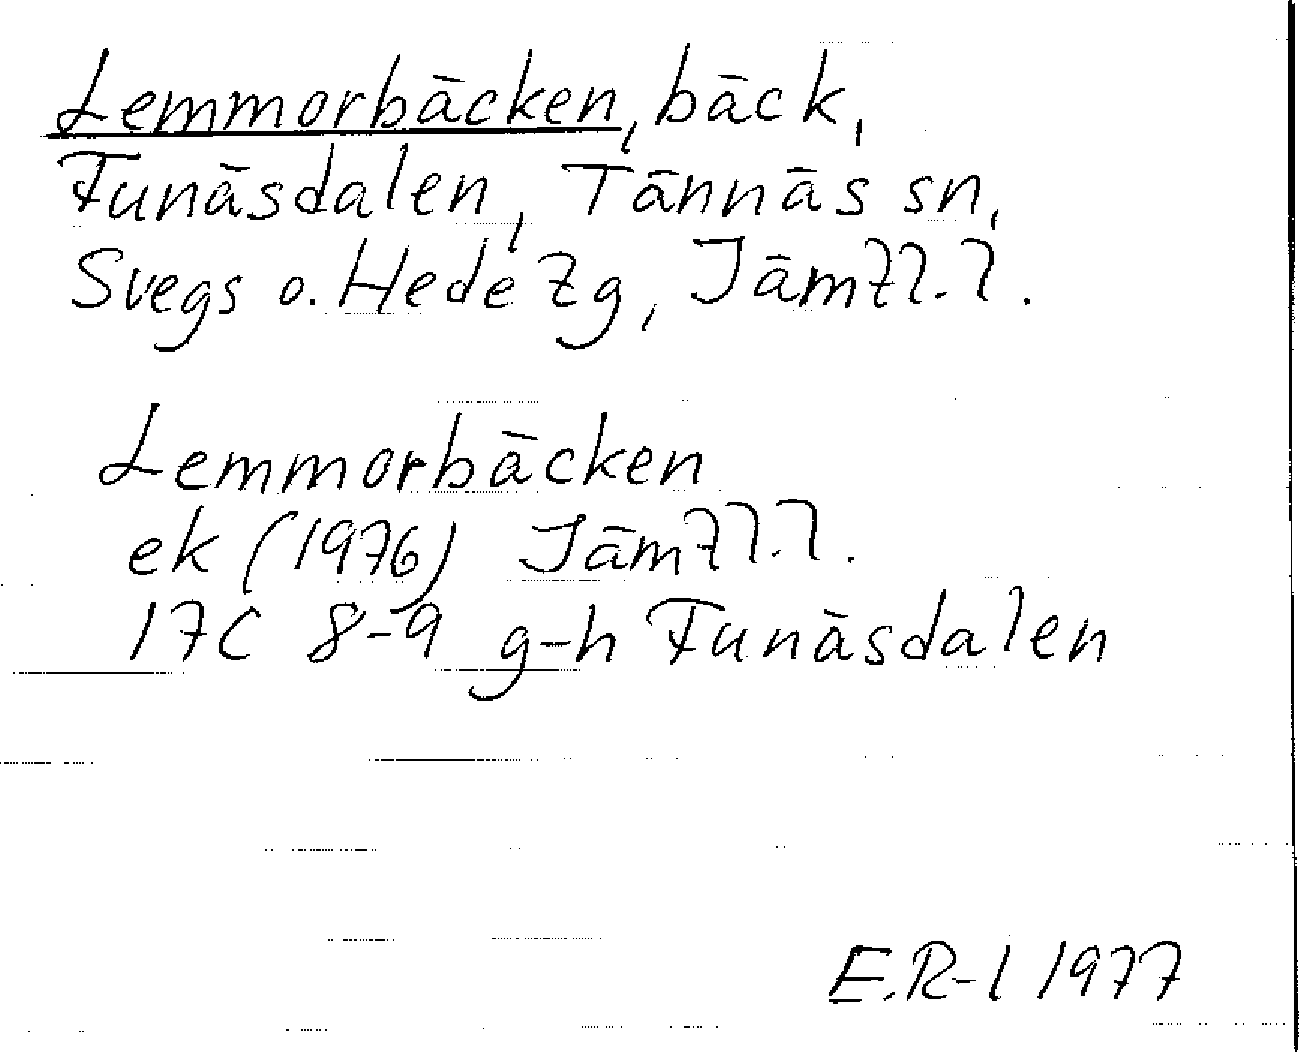 Lemmorbäcken, bäck,
Funäsdalen, Tännäs sn,
Svegs o. Hede tg, Jämtl. l.
Lemmorbäcken
ek (1976) Jämtl. l.
17C 8-9 g-h Funäsdalen
E.R-l 1977